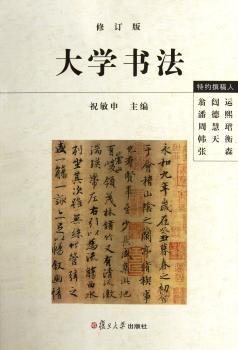 修订版
大学书法
祝敏申 主编
特约撰稿人
翁闿运
潘德熙
周慧珺
韩天衡
张森
永和九年歲在癸丑暮春之初會
于會稽山陰之蘭亭脩稧事
也群賢畢至少長咸集此地
有崇山峻領茂林脩竹又有清流激
湍暎帶左右引以為流觴曲水
列坐其次雖無絲竹管弦之
盛一觴一詠亦足以暢叙幽情
復旦大学出版社